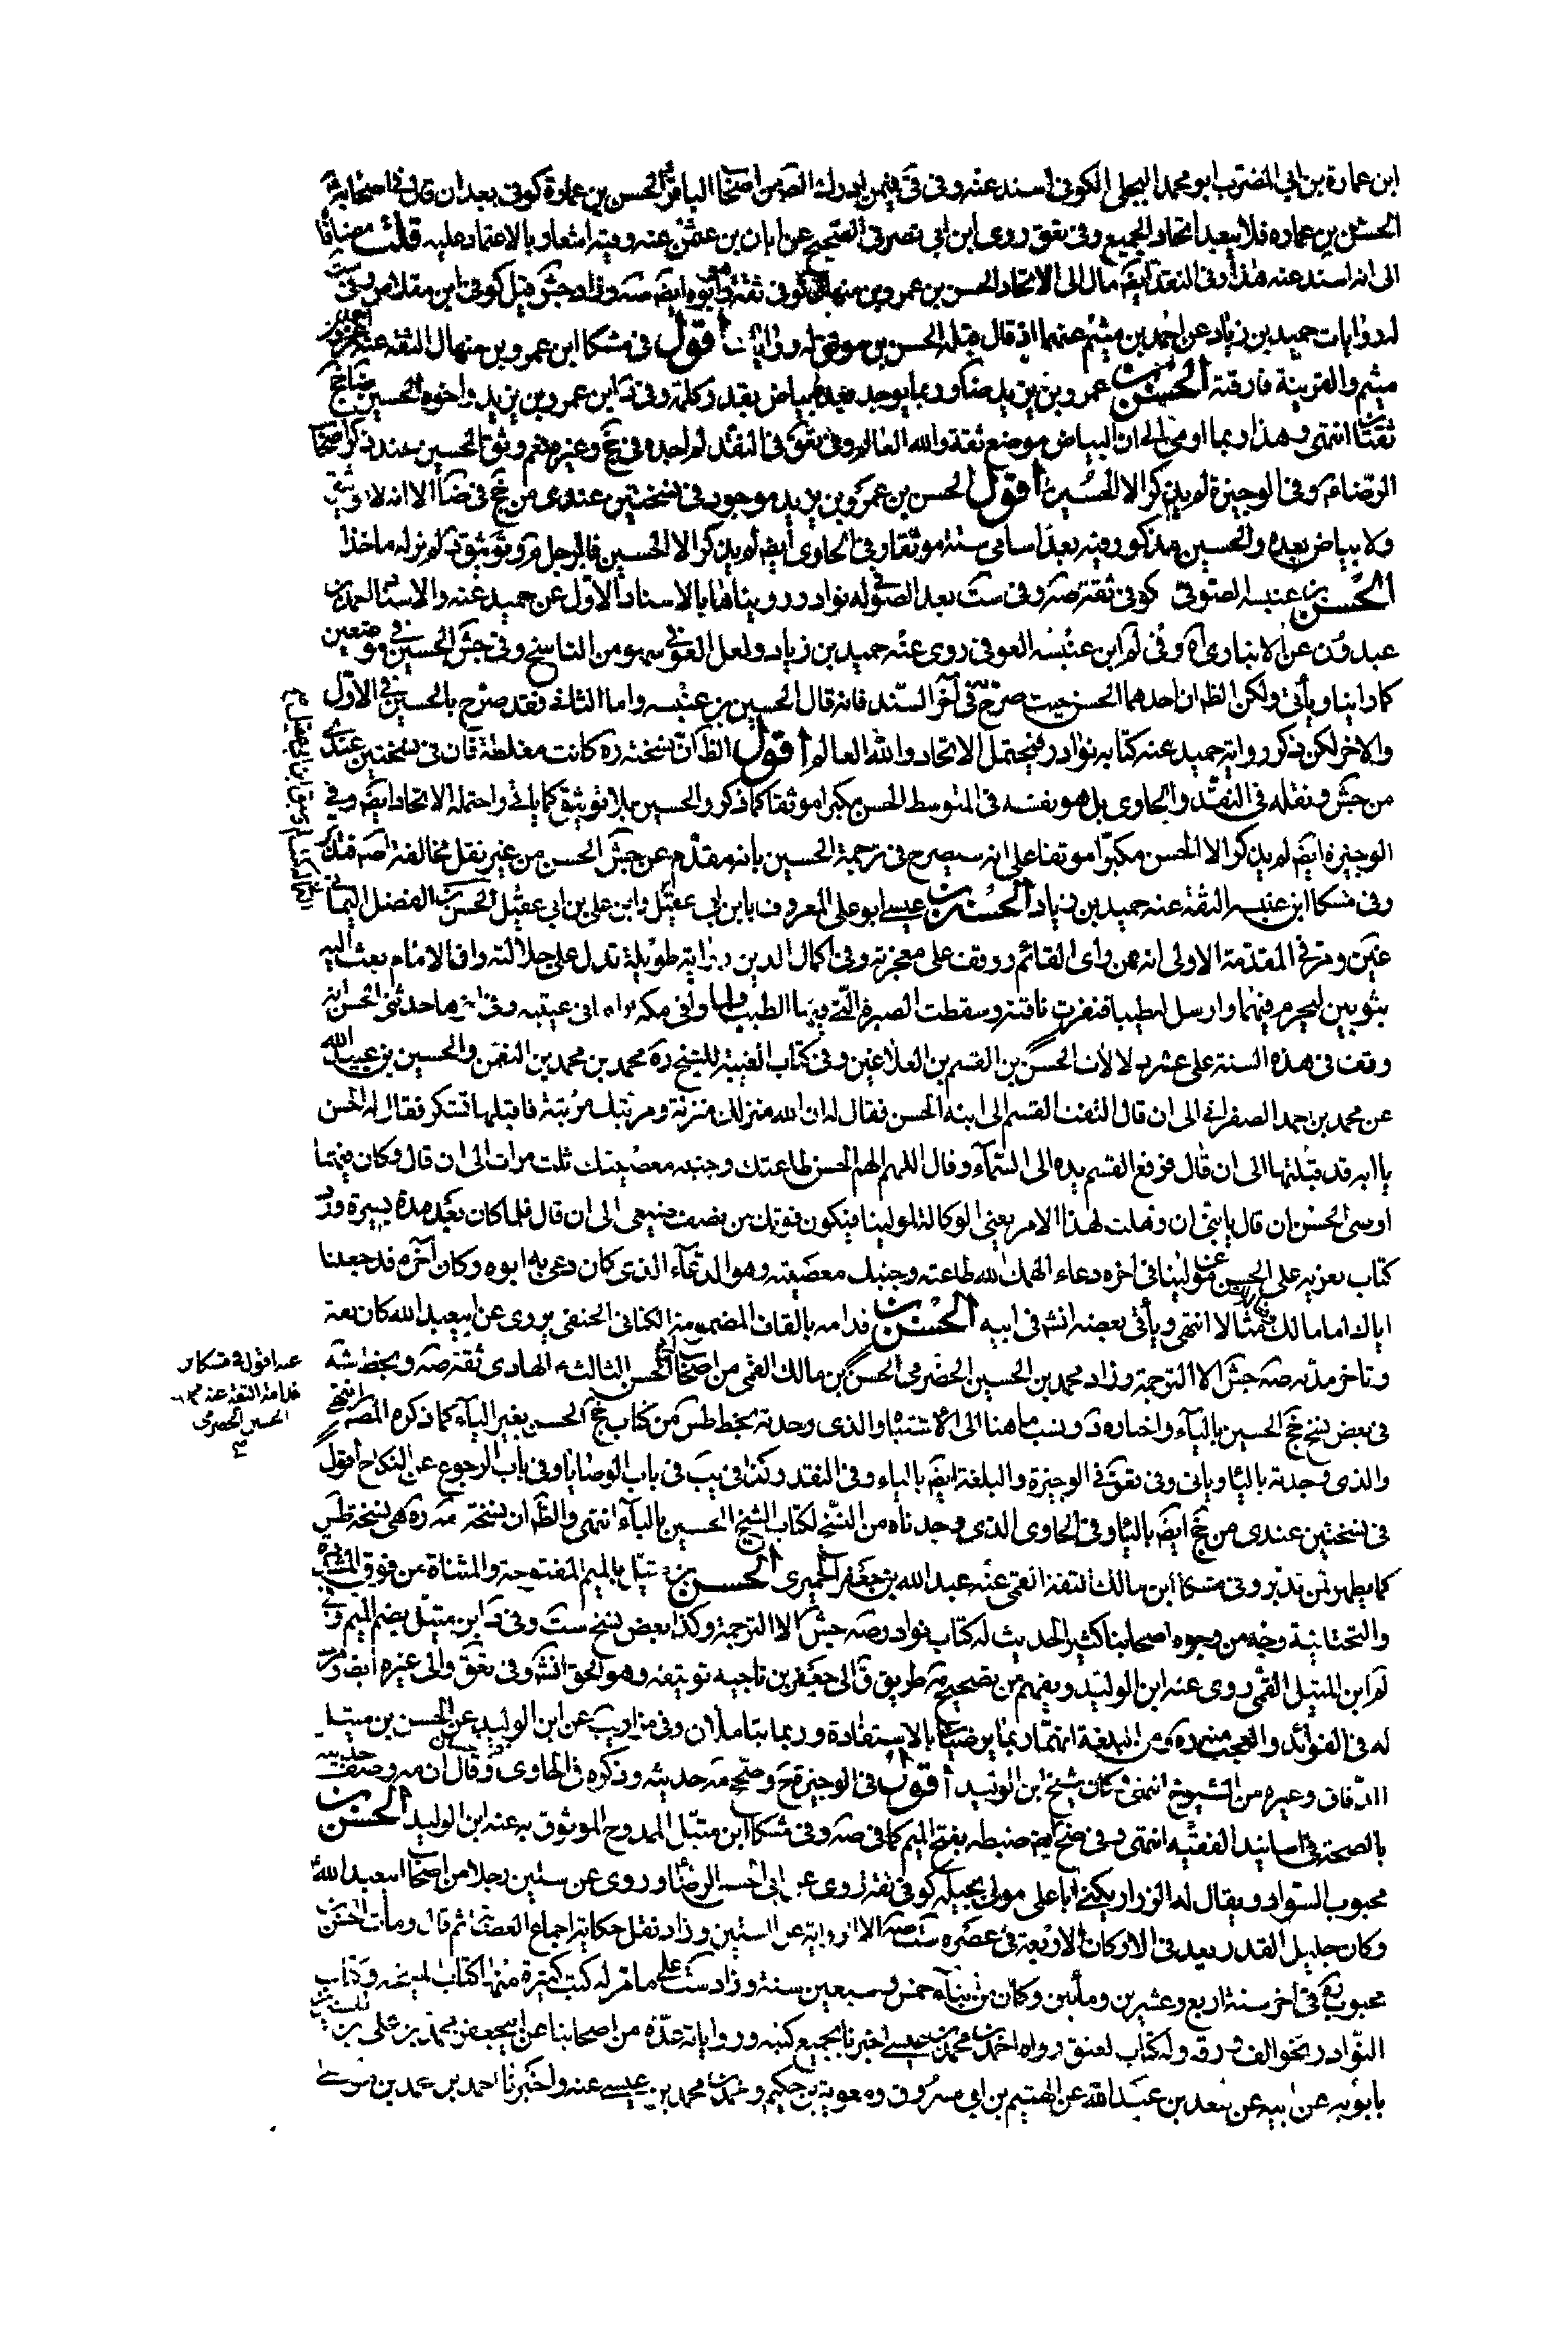 ابن عمارة بن ابي المضرب ابو محمد البجلي الكوفي اسند عنه وفي ق فيمن ادرك الصه من اصحا الباقر الحسن بن عمارة كوفي بعد ان قال في اصحابه
الحسن بن عماره فلا يبعد اتحاد الجميع وفي تعق روى ابن ابي نصر في الصحيح عن ابان بن عثمن عنه وفيه اشعار بالاعتماد عليه قلت مضافا
الى انه اسند عنه هذا وفي النقد ايض مال الى الاتحاد الحسن بن عمرو بن منهال كوفي ثقة هو وابوه ايض صه وزاد جش قيل كوفي ابن مقلاص
له روايات حميد بن زياد عن احمد بن ميثم عنهما اذ قال قبله الحسن بن موفق له روايات اقول في مشكا ابن عمرو بن منهال الثقة عنه احمد بن
ميثم والقرينة فارقة الحسن بن عمرو بن يزيد ضا وربما يوجد بعده بياض بقدر كلمة وفي د ابن عمرو بن يزيد واخوه الحسين ضا جخ
ثقتان انتهى وهذا ربما اومى الى ان البياض موضع ثقة والله العالم وفي تعق في النقد لم اجده في جخ وغيره نعم وثق الحسين عند ذكر اصحا
الرضا ع وفي الوجيزة لم يذكر الا الحسين اقول الحسن بن عمرو بن يزيد موجود في نسختين عندي من جخ في ضا الا انه لا توثيق
ولا بياض بعده والحسين مذكور فيه بعد اسامي ستة موثقا وفي الحاوي ايض لم يذكر الا الحسين فالرجل مر وتوثيق د لم نر له ماخذا
الحسن بن عنبسه الصوفي كوفي ثقة صه وفي ست بعد الصوفي له نوادر رويناها بالاسناد الاول عن حميد عنه والاسناد احمد بن
عبدون عن الانباري اه وفي لم ابن عنبسه العوفي روى عنه حميد بن زياد ولعل العوفي سهو من الناسخ وفي جش الحسين في موضعين
كما راينا وياتي ولكن الظ ان احدهما الحسن حيث صرح في آخر السند فانه قال الحسين بن عنبسه واما الثاني فقد صرح بالحسين في الاول
والاخر لكن ذكر رواية حميد عنه كتابه نوادر فيحتمل الاتحاد والله العالم اقول الظ ان نسخته ره كانت مغلطة فان في نسختين عندي
من جش ونقله في النقد والحاوي بل هو نفسه في المتوسط الحسن مكبرا موثقا كما ذكر والحسين بلا توثيق كما ياتي واحتمله الاتحاد ايض وفي
الوجيزة ايض لم يذكر الا الحسن مكبرا موثقا على انه سيصرح في ترجمة الحسين بانه مقدم عن جش الحسن من غير نقل مخالفة اصه فتدبر
وفي مشكا ابن عنبسه الثقة عنه حميد بن زياد الحسن بن عيسى ابو علي المعروف بابن ابي عقيل ابن علي بن ابي عقيل الحسن بن الفضل اليماني
عين ومر في المقدمة الاولى انه ممن راى القائم ووقف على معجزته وفي اكمال الدين رواية طويلة تدل على جلالته وان الامام بعث اليه
بثوبين ليحرم فيهما وارسل اليه طيبا فنفرت ناقته وسقطت الصرة التي فيها الطيب
وقف في هذه السنة على عشر دلالات الحسن بن القسم بن العلا عين وفي كتاب الغيبة للشيخ ره محمد بن محمد بن النعمن والحسين بن عبيد الله
عن محمد بن احمد الصفواني الى ان قال التفت القسم الى ابنه الحسن فقال له ان الله منزلك منزلة ومرتبك مرتبة فاقبلها بشكر فقال له الحسن
يا ابه قد قبلتها الى ان قال فرفع القسم يده الى السماء وقال اللهم الهم الحسن طاعتك وجنبه معصيتك ثلث مرات الى ان قال وكان فيما
اوصى الحسن ان قال يا بني ان وهلت لهذا الامر يعني الوكالة لمولينا فيكون قوتك من نصف ضيعتي الى ان قال فلما كان بعد مدة يسيرة ورد
كتاب تعزية على الحسن عن مولينا في اخره دعاء الهمك الله طاعته وجنبك معصيته وهو الدعاء الذي كان دعى به ابوه وكان آخره قد جعلنا
اباك اماما لك وفعاله لك مثالا انتهى وياتي بعضه انش في ابيه الحسن بن قدامه بالقاف المضمومة الكناني الحنفي يروي عن ابيعبد الله كان ثقة
وتاخر مدته صه جش الا الترجمة وزاد محمد بن الحسين الحضرمي الحسن بن مالك القمي من اصحا ابي الحسن الثالث الهادي ثقة صه وبخط شه
في بعض نسخ جخ الحسين بالياء واختاره د ونسب ما هنا الى الاشتباه والذي وجدته بخط طس من كتاب جخ الحسن بغير الياء كما ذكره المصه انتهى
والذي وجدته بالياء وياتي وفي تعق في الوجيزة والبلغة ايض بالياء وفي النقد وكذا في يب في باب الوصايا وفي باب الرجوع عن النكاح اقول
في نسختين عندي من جخ ايض بالياء وفي الحاوي الذي وجدناه من النسخ لكتاب الشيخ الحسين بالياء انتهى والظ ان نسخة مه ره هي نسخة طس
كما يظهر لمن تدبر وفي مشكا ابن مالك الثقة القمي عنه عبد الله بن جعفر الحميري الحسن بن متيل بالميم المفتوحة والمثناة من فوق المشددة
والتحتانية وجه من وجوه اصحابنا كثير الحديث له كتاب نوادر صه جش الا الترجمة وكذا بعض نسخ ست وفي د ابن متيل بضم الميم وفي
لم ابن المتيل القمي روى عنه ابن الوليد ويفهم من تصحيح مه طريق ق الى جعفر بن ناجيه توثيقه وهو الحق انش وفي تعق والى غيره ايض ومر
له في الفوائد والعجب
الدقاق وغيره من الشيوخ انتهى وكان شيخ ابن الوليد اقول في الوجيزة ح وصحح مه حديثه وذكره في الحاوي وقال ان مه وصف حديثه
بالصحة في اسانيد الفقيه انتهى وفي ضح ايض ضبطه بفتح الميم كما في صه وفي مشكا ابن متيل الممدوح الموثوق به عنه ابن الوليد الحسن بن
محبوب السراد ويقال له الزراد يكنى ابا علي مولى بجيله كوفي ثقة روى عن ابي الحسن الرضا وروى عن ستين رجلا من اصحاب ابيعبد الله
وكان جليل القدر يعد في الاركان الاربعة في عصره ست صه الا الرواية عن الستين وزاد نقل حكاية اجماع العصابة ثم قال ومات الحسن بن
محبوب ره في آخر سنة اربع وعشرين ومأتين وكان من ابناء خمس وسبعين سنة وزاد ست على ما مر له كتب كثيرة منها كتاب المشيخه وكتاب
النوادر نحو الف ورقة وله كتاب لعتق رواه احمد بن محمد بن عيسى اخبرنا بجميع كتبه ورواياته عدة من اصحابنا عن ابيجعفر محمد بن علي بن الحسين بن
بابويه عن ابيه عن سعد بن عبد الله عن الهيثم بن ابي مسروق ومعوية بن حكيم واحمد بن محمد بن عيسى عنه واخبرنا احمد بن محمد بن موسى
عه اقول في مشكا ابن
قدامة الثقة عنه محمد بن
الحسين الحضرمي